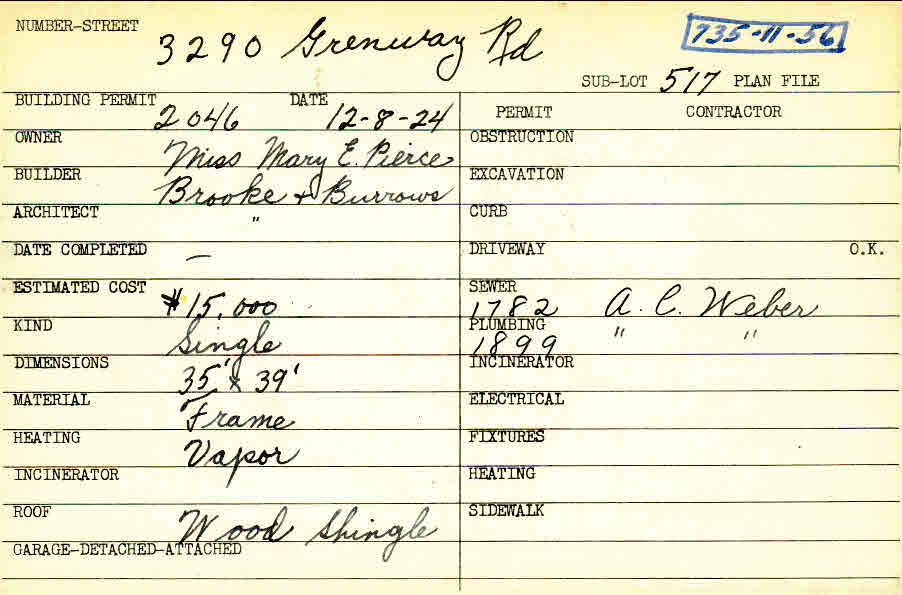 NUMBER-STREET 3290 Grenway Rd 735-11-56
SUB-LOT 517 PLAN FILE
BUILDING PERMIT 2046 DATE 12-8-24
OWNER Miss Mary E. Pierce
BUILDER Brooke & Burrows
ARCHITECT "
DATE COMPLETED —
ESTIMATED COST $15,000
KIND Single
DIMENSIONS 35' x 39'
MATERIAL Frame
HEATING Vapor
INCINERATOR
ROOF Wood Shingle
GARAGE-DETACHED-ATTACHED
PERMIT CONTRACTOR
OBSTRUCTION
EXCAVATION
CURB
DRIVEWAY O.K.
SEWER 1782 A. C. Weber
PLUMBING 1899 " "
INCINERATOR
ELECTRICAL
FIXTURES
HEATING
SIDEWALK